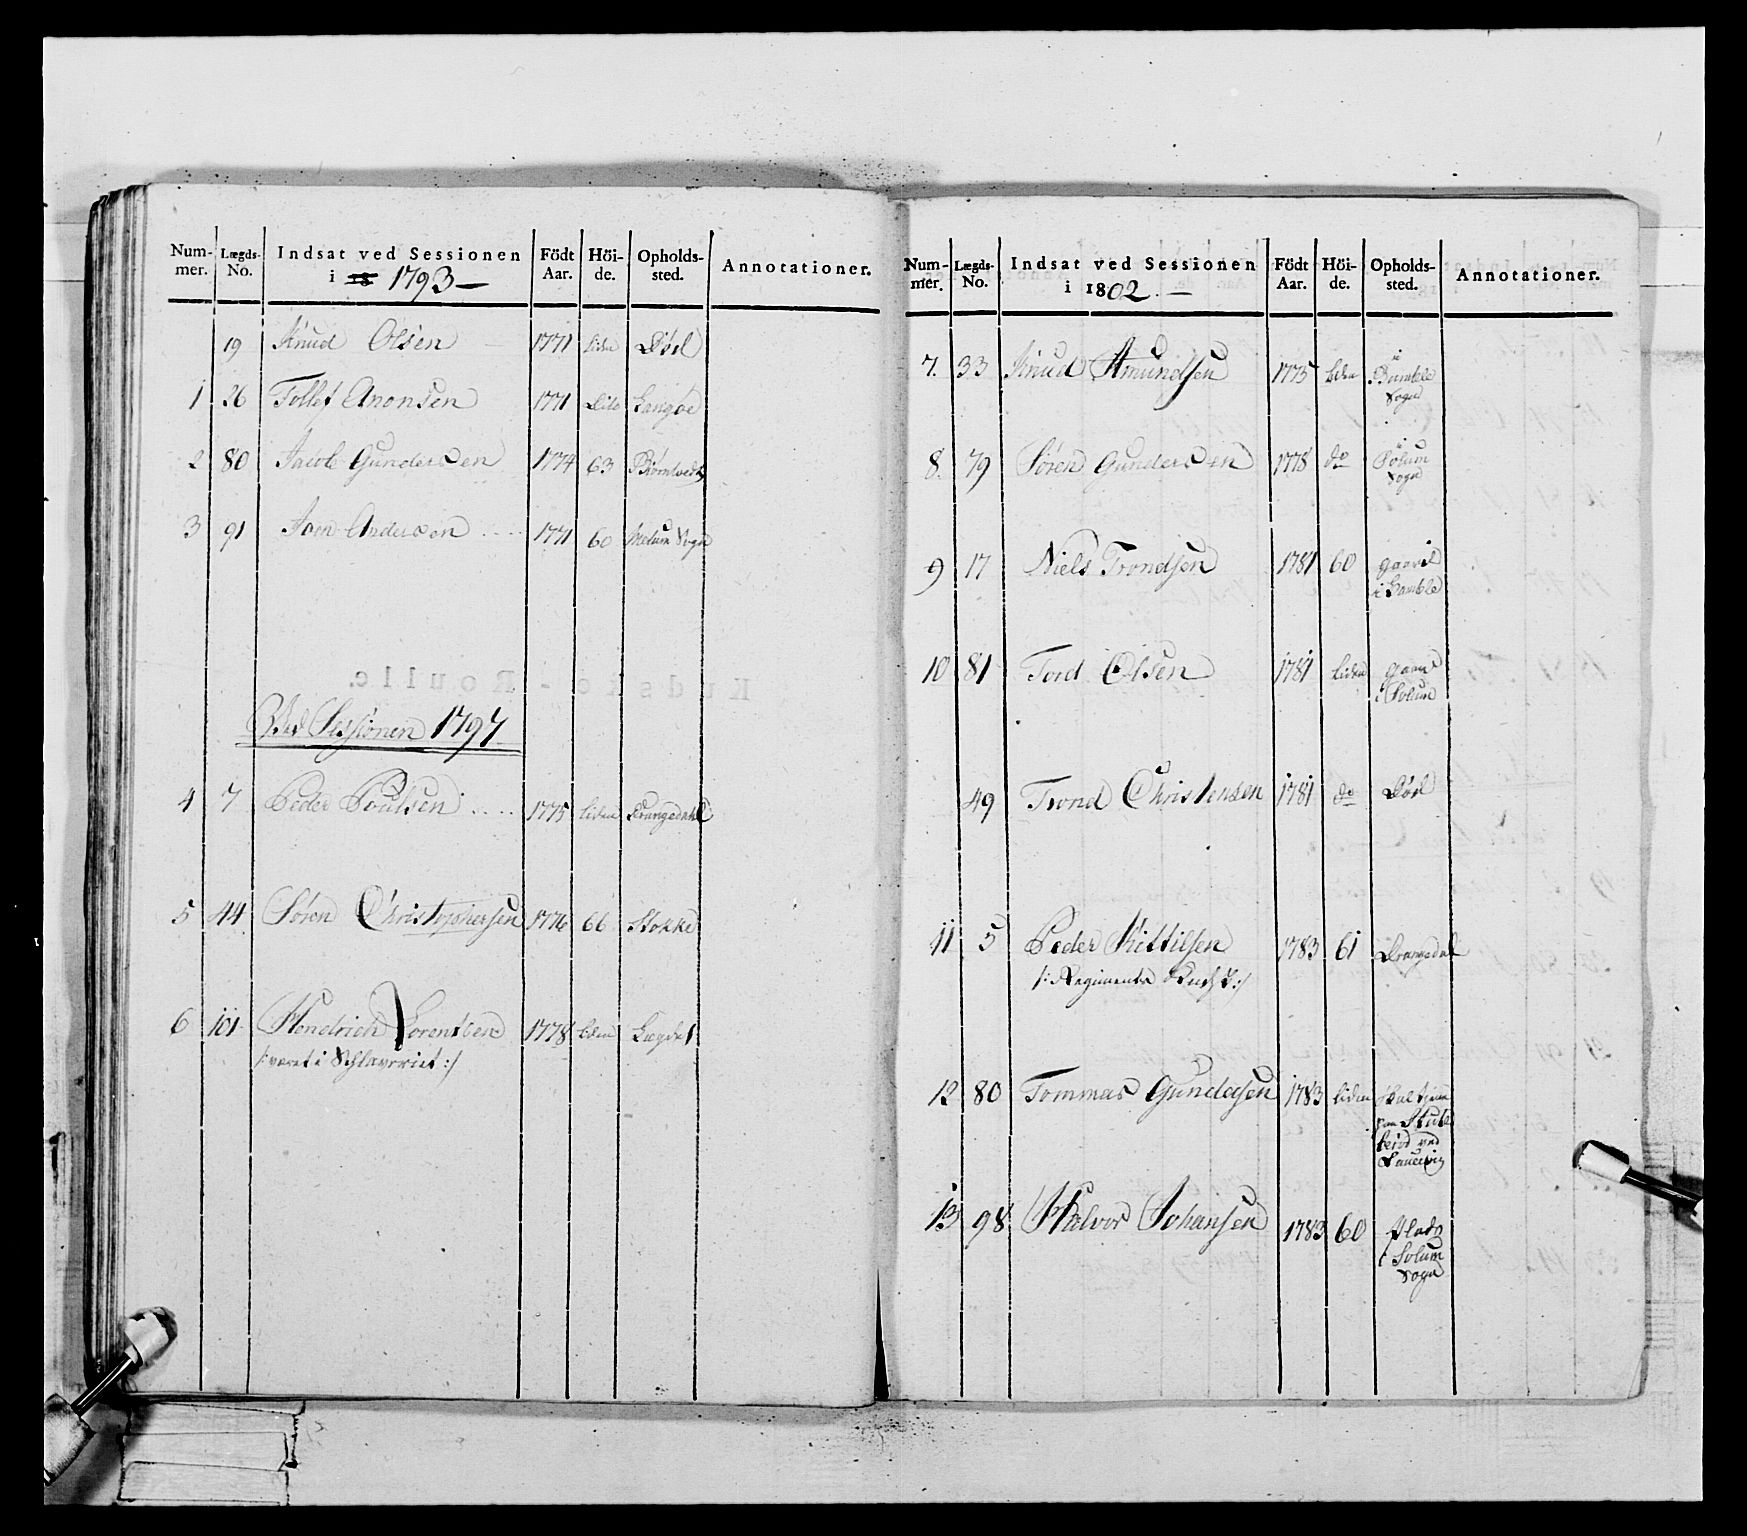 Num-mer. Lægds-No. Indsat ved Sessionen i 18 1793 — Födt Aar. Höi-de. Opholds-sted. Annotationer.
19 Knud Olsen 1771 liden Død
1 26 Tollef Anonsen 1771 Dito Langøe
2 80 Jacob Gundersen 1774 63
3 91 Andersen 1771 60 Melum Sogn
Ved Sessionen 1797
4 7 Peder Poulsen 1775 liden Drangedahl
5 44 Søren Christophersen 1776 66 Stokke
6 101 Hendrich Lorentsen 1778 liden
/: været i Schlaveriet :/
Num-mer. Lægds-No. Indsat ved Sessionen i 1802. — Födt Aar. Höi-de. Opholds-sted. Annotationer.
7. 33 Knud Amundsen 1775 liden i Bamble Sogn
8. 79 Søren Gundersen 1778 do i Solum Sogn
9 17 Niels Trondsen 1781 60 i Bamble
10 81 Tord Olsen 1781 liden i Solum
49 Trond Christensen 1781 do Død
11 5 Peder Kittilsen 1783 61 Drangedal
/: Regiments :/
12 80 Tommas Gundersen 1783 liden
ved
13 98 Halvor Johansen 1783 60
i Solum
Sogn